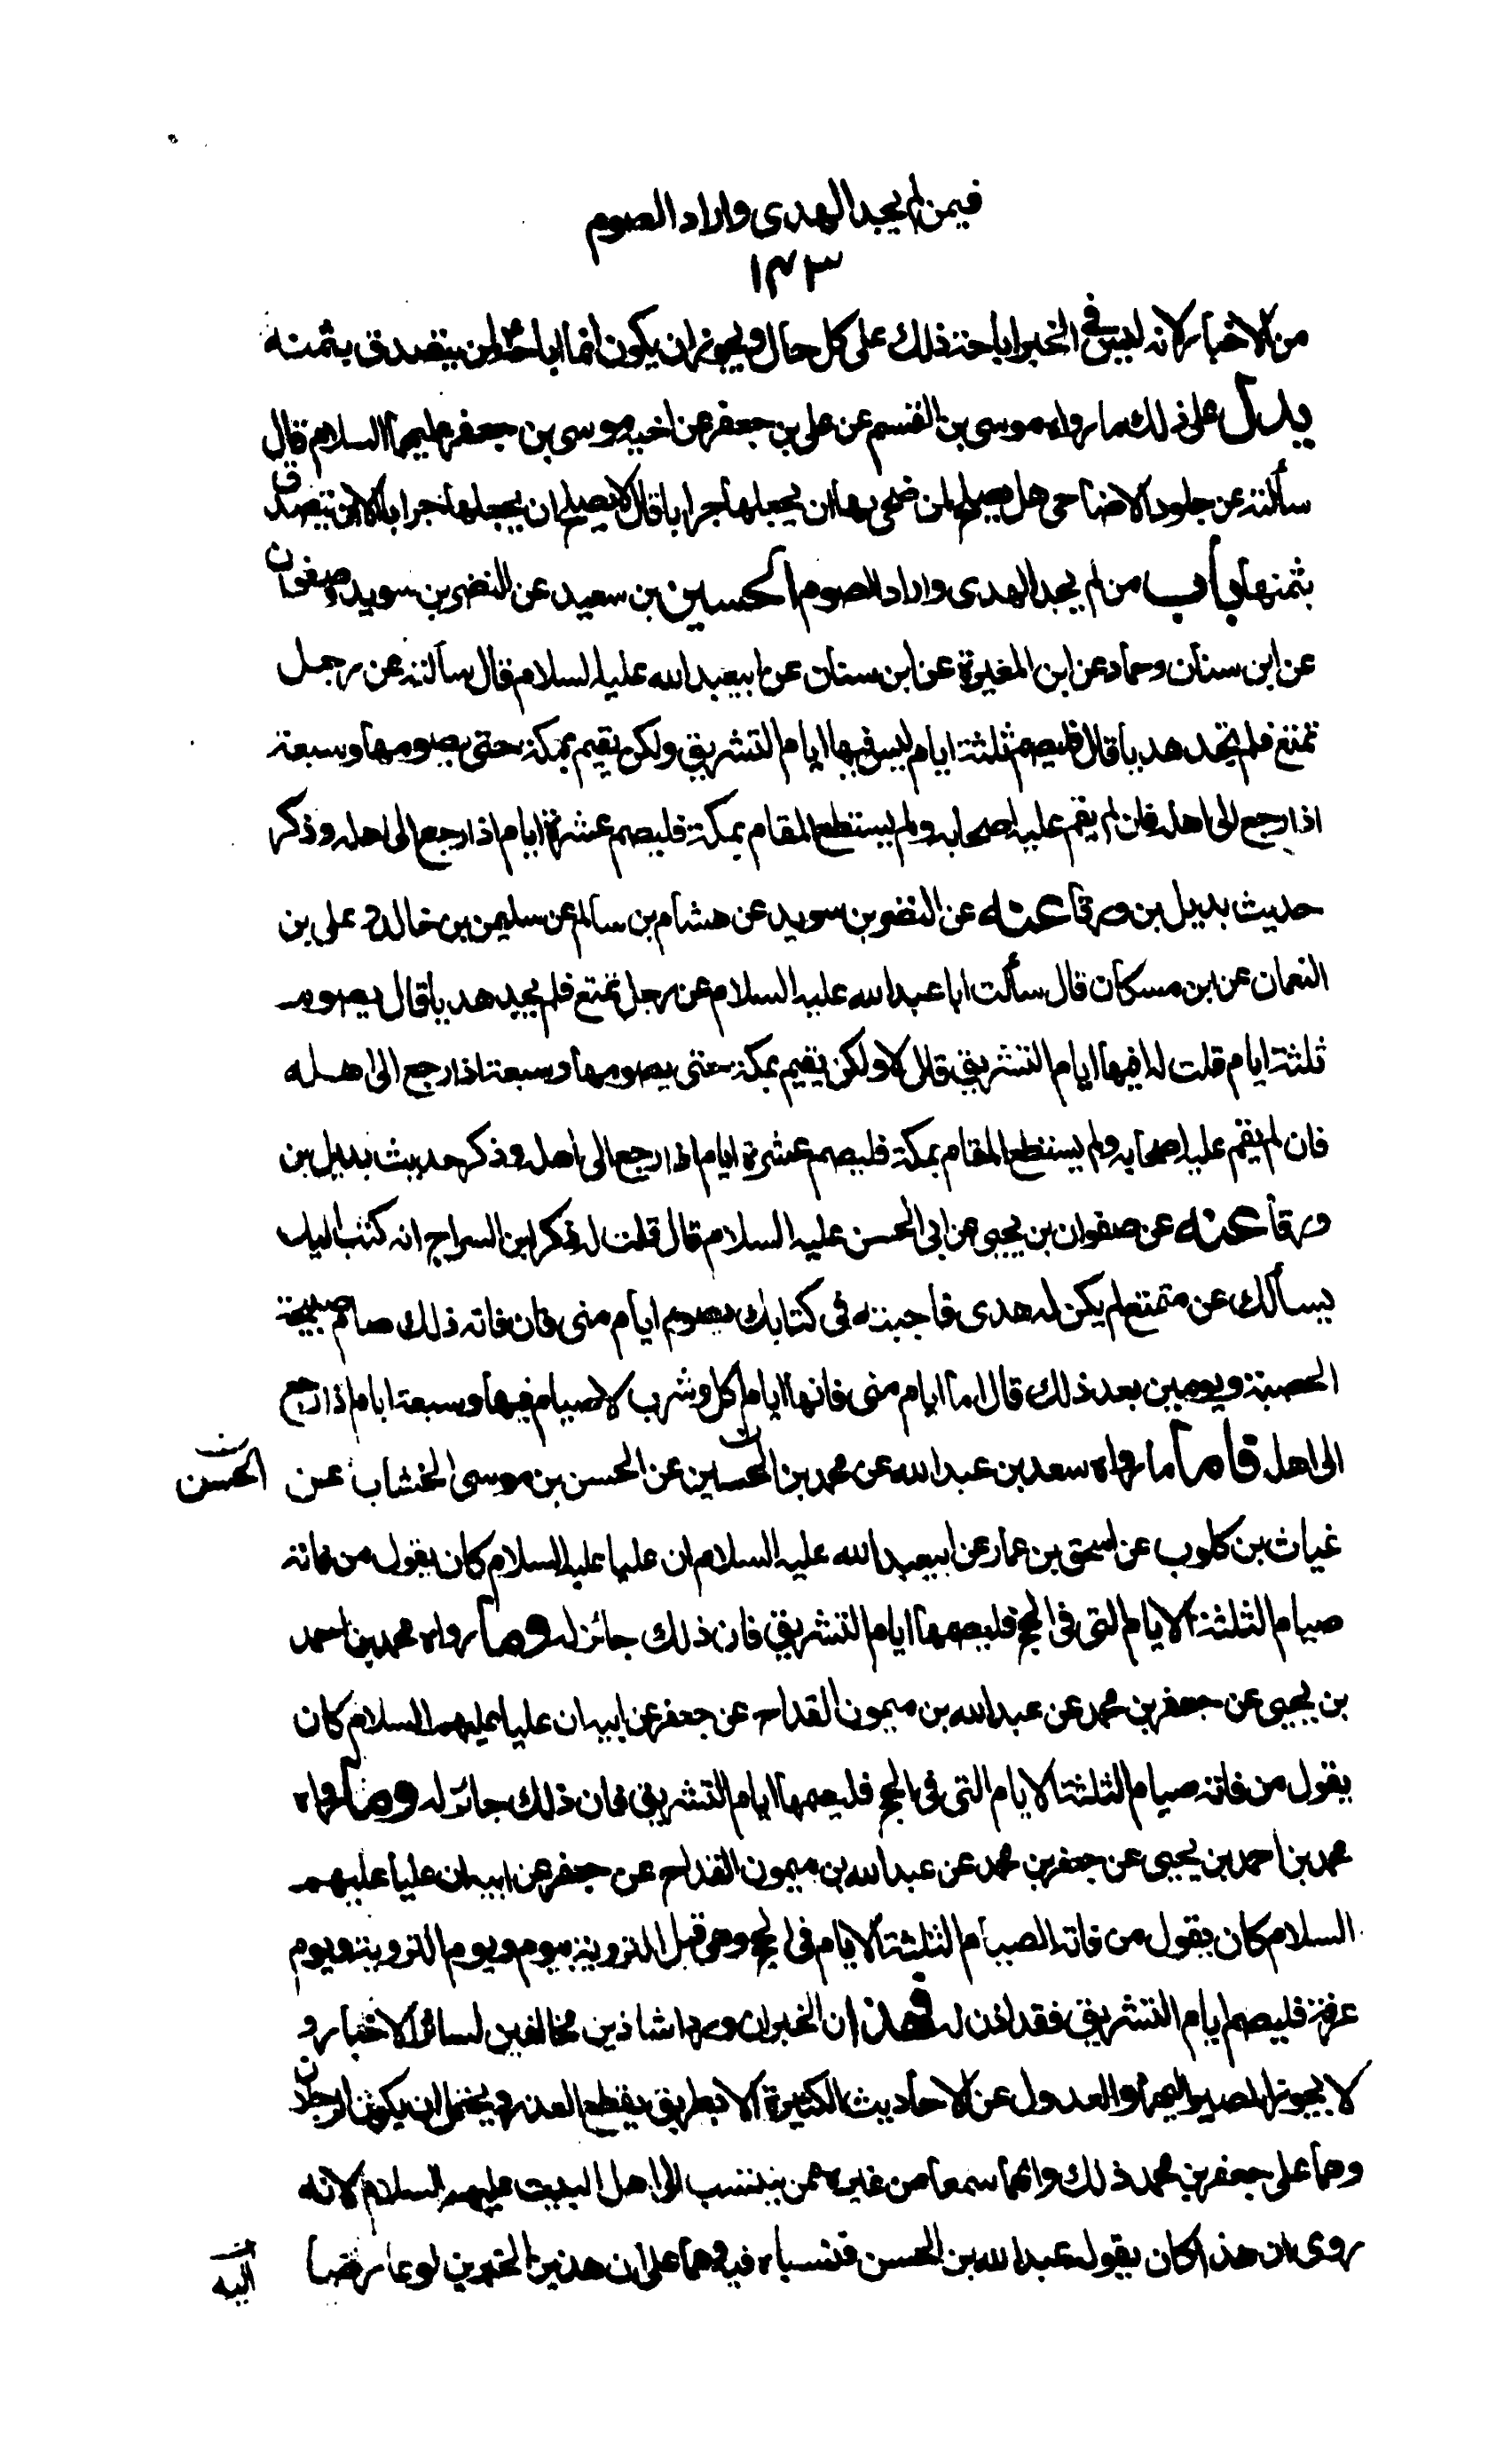 فيمن لم يجد الهدى واراد الصوم
١٤٣
من الاخبار لانه ليس في الخبر اباحة ذلك على كل حال ويجوز ان يكون انما اباحه لمن يتصدق بثمنه
يدل على ذلك ما رواه موسى بن القسم عن على بن جعفر عن اخيه موسى بن جعفر عليهما السلام قال
سألته عن جلود الاضاحى هل يصلح لمن ضحى بها ان يجعلها جرابا قال لا يصلح ان يجعلها جرابا الا ان يتصدق
بثمنها باب من لم يجد الهدى واراد الصوم الحسين بن سعيد عن النضر بن سويد وصفوان
عن ابن سنان وحماد عن ابن المغيرة عن ابن سنان عن ابيعبد الله عليه السلام قال سألته عن رجل
تمتع فلم يجد هديا قال فليصم ثلثة ايام ليس فيها ايام التشريق ولكن يقيم بمكة حتى يصومها وسبعة
اذا رجع الى اهله فان لم يقم عليه اصحابه ولم يستطع المقام بمكة فليصم عشرة ايام اذا رجع الى اهله وذكر
حديث بديل بن ورقا عنه عن النضر بن سويد عن هشام بن سالم عن سليمن بن خالد و على بن
النعمان عن ابن مسكان قال سألت ابا عبد الله عليه السلام عن رجل تمتع فلم يجد هديا قال يصوم
ثلثة ايام قلت له افيها ايام التشريق قال لا ولكن يقيم بمكة حتى يصومها وسبعة اذا رجع الى اهله
فان لم يقم عليه اصحابه ولم يستطع المقام بمكة فليصم عشرة ايام اذا رجع الى اهله وذكر حديث بديل بن
ورقا عنه عن صفوان بن يحيى عن ابى الحسن عليه السلام قال قلت له ذكر ابن السراج انه كتب اليك
يسألك عن متمتع لم يكن له هدى فاجبته فى كتابك يصوم ايام منى فان فاته ذلك صام صبيحة
الحصبة ويومين بعد ذلك قال اما ايام منى فانها ايام اكل وشرب لا صيام فيها وسبعة ايام اذا رجع
الى اهله فاما ما رواه سعد بن عبد الله عن محمد بن الحسين عن الحسن بن موسى الخشاب عن
الحسن
غياث بن كلوب عن اسحق بن عمار عن ابيعبد الله عليه السلام ان عليا عليه السلام كان يقول من فاته
صيام الثلثة الايام التى فى الحج فليصمها ايام التشريق فان ذلك جائز له وما رواه محمد بن احمد
بن يحيى عن جعفر بن محمد عن عبد الله بن ميمون القداح عن جعفر عن ابيه ان عليا عليهم السلام كان
يقول من فاته صيام الثلثة الايام التى فى الحج فليصمها ايام التشريق فان ذلك جائز له وما رواه
محمد بن احمد بن يحيى عن جعفر بن محمد عن عبد الله بن ميمون القداح عن جعفر عن ابيه ان عليا عليهم
السلام كان يقول من فاته الصيام الثلثة الايام فى الحج وهى قبل التروية بيوم ويوم التروية ويوم
عرفة فليصم ايام التشريق فقد اذن له فهذان الخبران وردا شاذين مخالفين لسائر الاخبار و
لا يجوز المصير اليهما والعدول عن الاحاديث الكثيرة الا بطريق يقطع العذر ويحتمل ان يكون الرجلان
وهما على جعفر بن محمد ذلك وانهما سمعا من غيره ممن ينتسب الى اهل البيت عليهم السلام لانه
روى ان هذا كان يقوله عبد الله بن الحسن فنسباه فيه وهما على ان هذين الخبرين لو عارضا
اليه